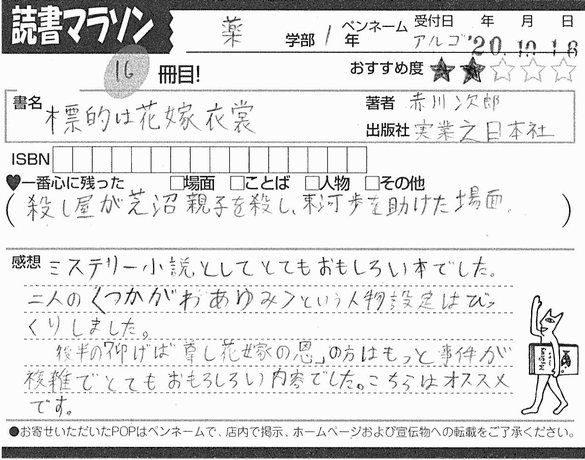 読書マラソン 薬 学部 / 1 年 ペンネーム アルゴ 受付日 年 月 日 '20.10.16
16 冊目! おすすめ度 ★★☆☆☆
書名 標的は花嫁衣裳 著者 赤川次郎
出版社 実業之日本社
ISBN
♥一番心に残った □場面 □ことば □人物 □その他
(殺し屋が芝沼親子を殺し、東河歩を助けた場面。)
感想 ミステリー小説としてとてもおもしろい本でした。
二人の〈つかがわあゆみ〉という人物設定はびっ
くりしました。
後半の「仰げば尊し花嫁の恩」の方はもっと事件が
複雑でとてもおもろしろい内容でした。こちらはオススメ
です。
●お寄せいただいたPOPはペンネームで、店内で掲示、ホームページおよび宣伝物への転載をご了承ください。